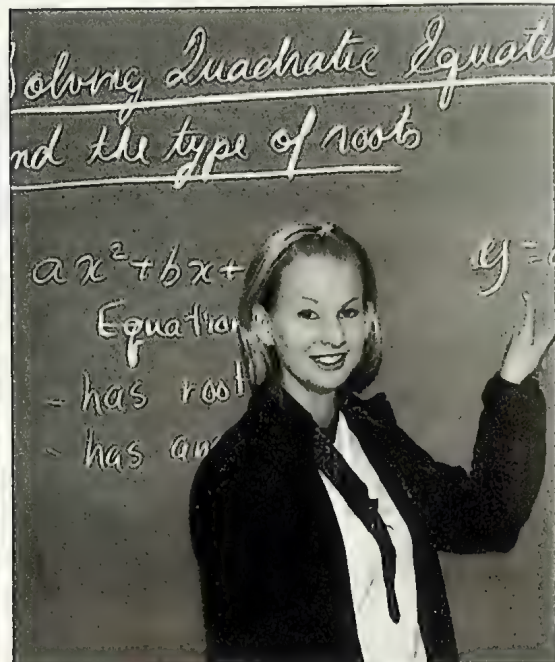 olving Quadratic Equat
nd the type of roots
ax²+bx+
y=
Equation
- has root
- has an